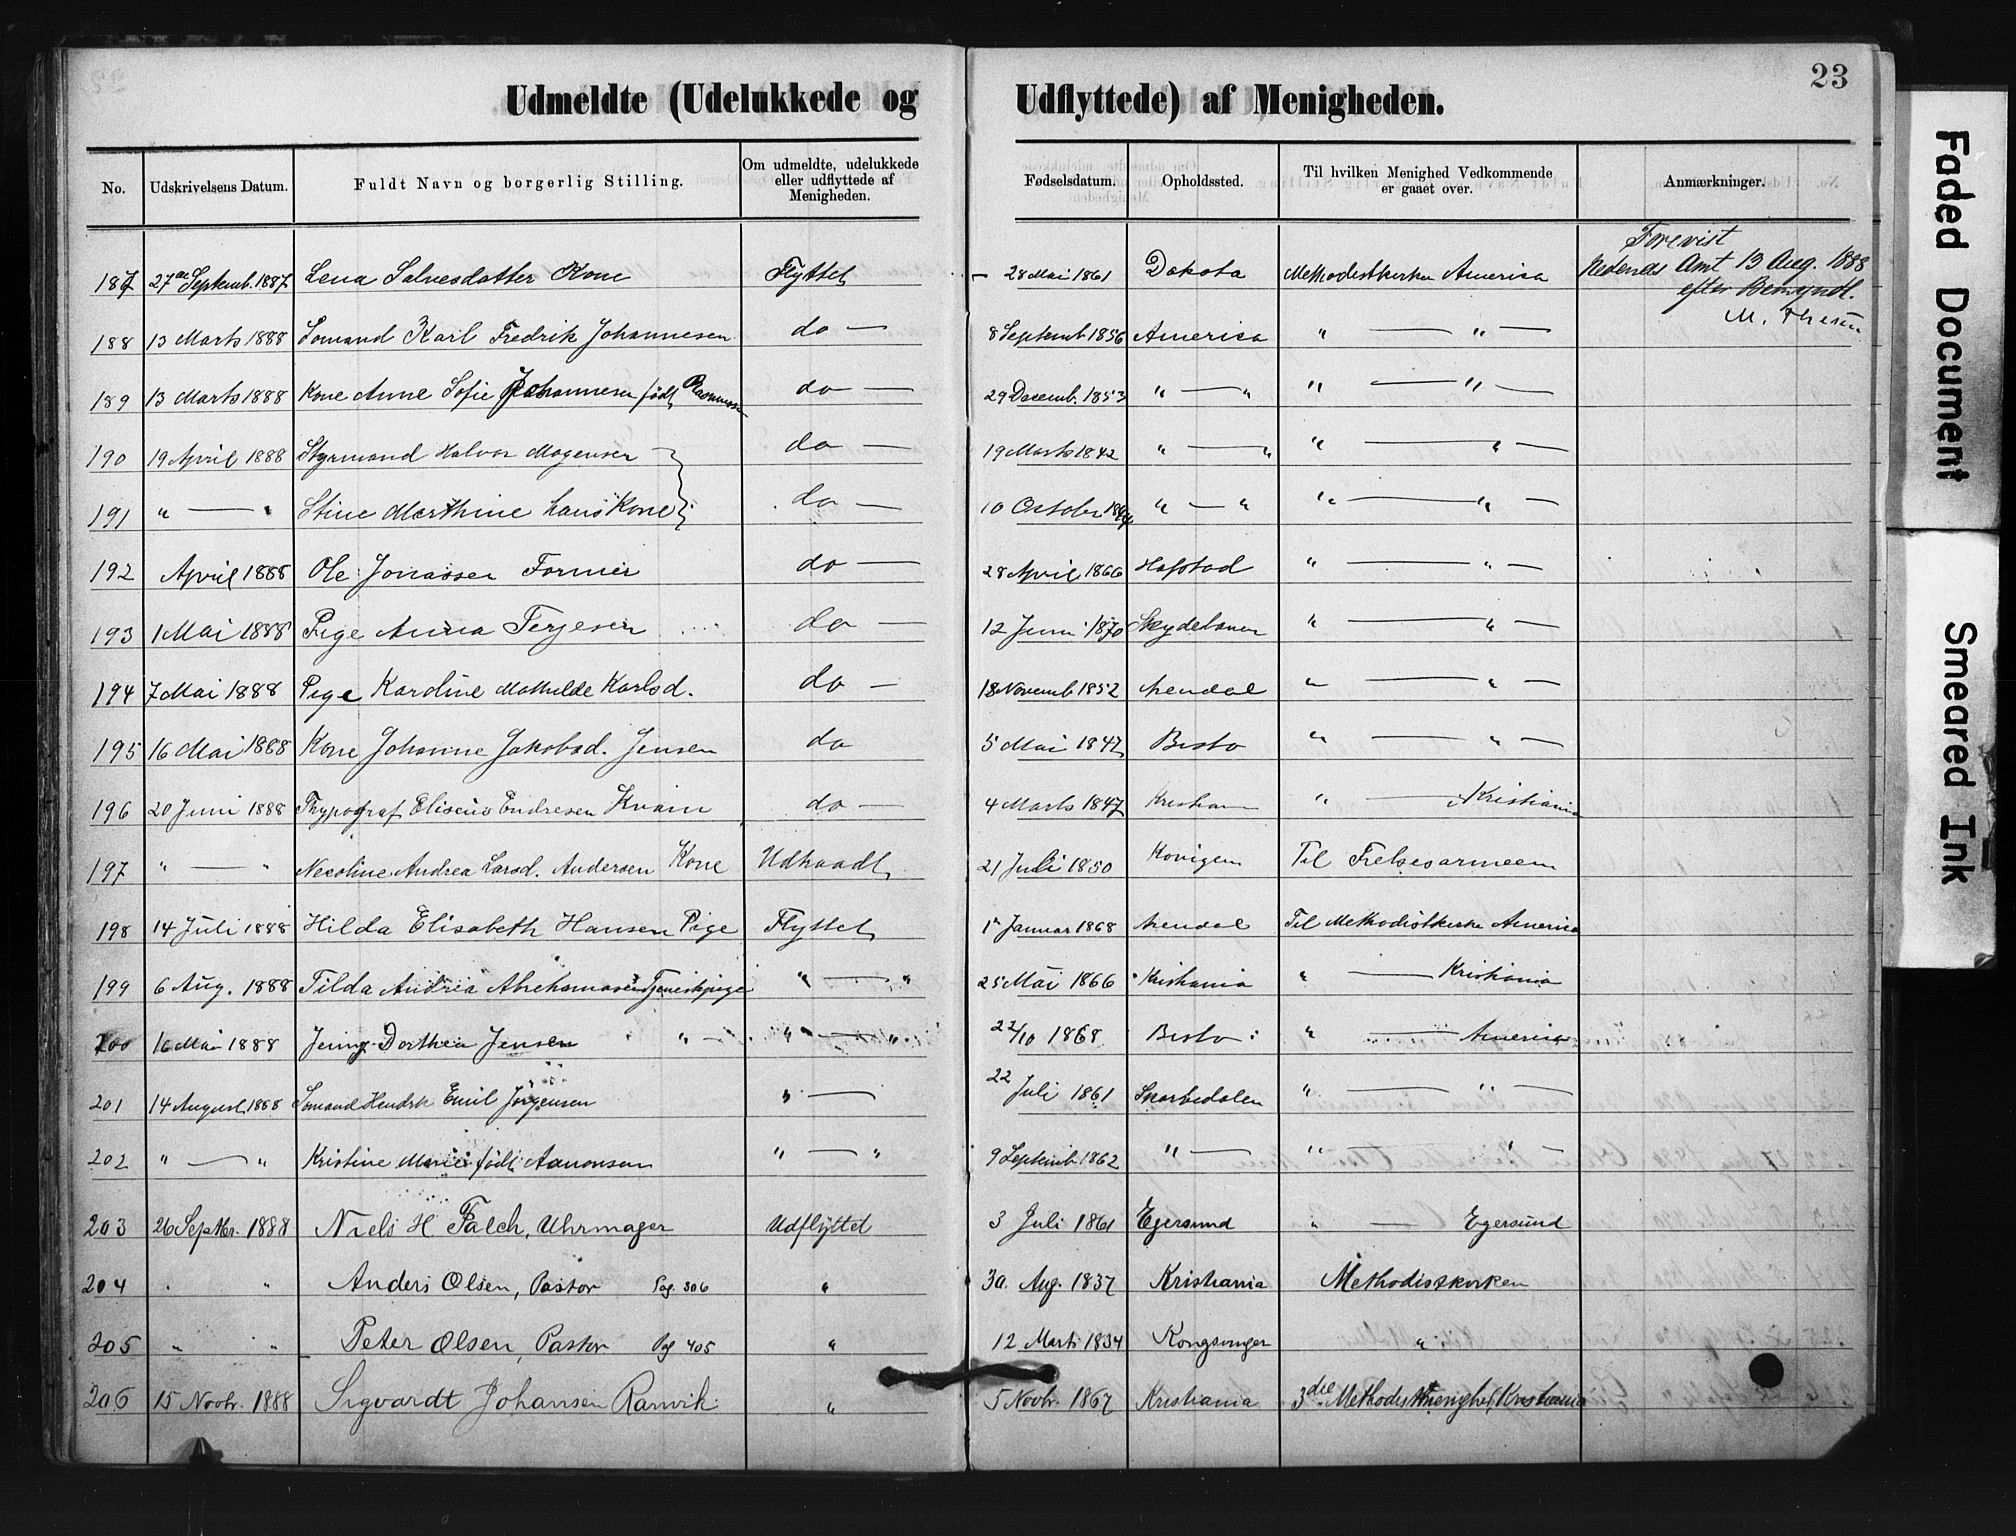 23
Udmeldte (Udelukkede og Udflyttede) af Menigheden.
No. Udskrivelsens Datum. Fuldt Navn og borgerlig Stilling. Om udmeldte, udelukkede eller udflyttede af Menigheden. Fødselsdatum. Opholdssted. Til hvilken Menighed Vedkommende er gaaet over. Anmærkninger.
Forevist
187 27de Septemb. 1887 Lena Salvesdatter Kone Flyttet 28 Mai 1861 Dakota Methodistkirke America Nedenæs Amt 13 Aug. 1888
efter Bemyndl.
M. Thesen
188 13 Marts 1888 Sømand Karl Fredrik Johannesen do — 8 Septemb 1856 America " — " —
189 13 Marts 1888 Kone Anne Sofie Johannesen født Rasmussen do — 29 Decemb. 1853 " — " " — " —
190 19 April 1888 Styrmand Halvor Mogensen do — 19 Marts 1842 " — " " — " —
191 " — " Stine Marthine hans Kone do — 10 October " — " " — " —
192 April 1888 Ole Jonassen Former do — 28 April 1866 Hafstad " — " —
193 1 Mai 1888 Pige Anna Terjesen do — 12 Juni 1870 " — " —
194 7 Mai 1888 Pige Karoline Mathilde Karlsd. do — 18 Novemb 1852 Arendal " — " —
195 16 Mai 1888 Kone Johanne Jakobsd. Jensen do 5 Mai 1847 " — " —
196 20 Juni 1888 Thypograf Eliseus Endresen Kvam do — 4 Marts 1847 " — Kristiania
197 " — " Necoline Andrea Larsd. Andersen Kone Udtraadt 21 Juli 1850 Til Frelsesarmeen
198 14 Juli 1888 Hilda Elisabeth Hansen Pige Flyttet Januar 1868 Arendal Til Methodistkirke America
199 6 Aug. 1888 Tilda Andrea Abrahamsen Tjenestpige " — " 25 Mai 1866 Kristiania " — Kristiania
200 16 Mai 1888 Jenny Dorthea Jensen " — " — " 22/10 1868 " — America
201 14 August 1888 Sømand Hendrk Emil Jørgensen " — 22 Juli 1861 Skarbedalen " — " —
202 " — " Kristine Marie født Aanonsen " — " 9 Septemb 1862 " — " — " —
203 26 Septbr. 1888 Niels H Falch, Uhrmager Udflyttet 3 Juli 1861 Egersund " — Egersund
204 " " Anders Olsen, Pastor Pag. 306 " 30. Aug. 1837 Kristiania Methodistkirken
205 " " Peter Olsen, Pastor Pag 405 " 12 Marts 1834 Kongsvinger "
206 15 Novbr. 1888 Sigvardt Johansen Ramvik " 5 Novbr. 1867 Kristiania 3die Methodistmenighed, Kristiania
Faded Document
Smeared Ink